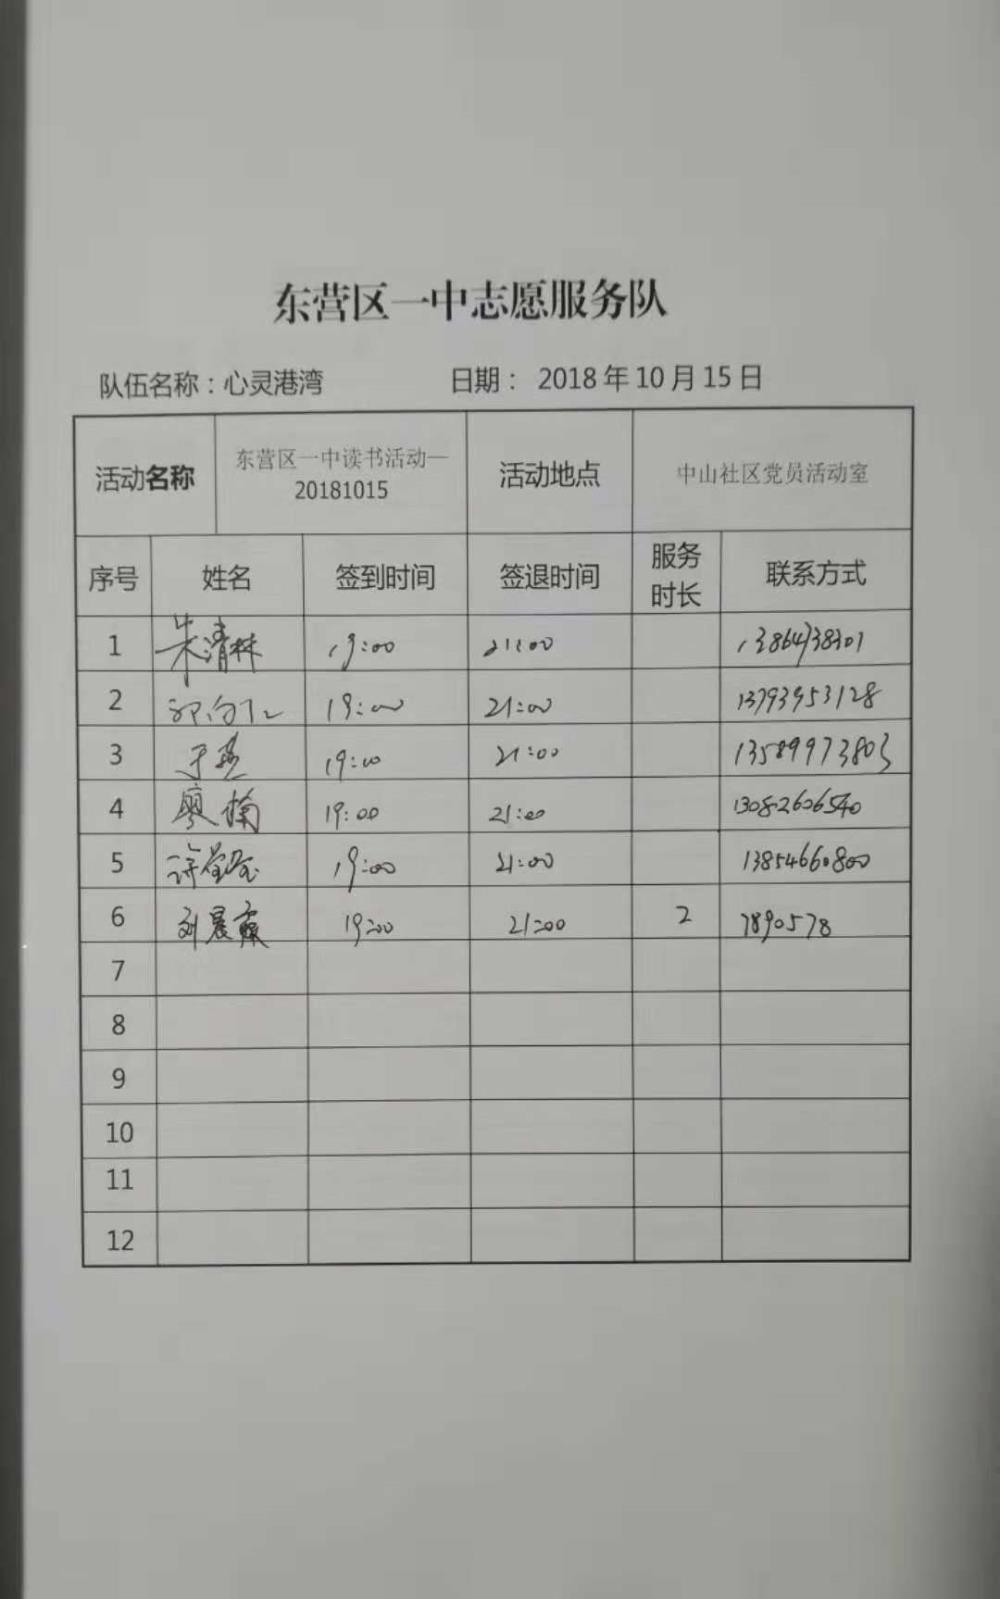 东营区一中志愿服务队
队伍名称：心灵港湾 日期： 2018 年 10 月 15 日
活动名称 东营区一中读书活动— 活动地点 中山社区党员活动室
20181015
序号 姓名 签到时间 签退时间 服务时长 联系方式
1 朱清林 19:00 21:00 13864738301
2 19:00 21:00 13793953128
3 于燕 19:00 21:00 13589973803
4 廖楠 19:00 21:00 13082606540
5 19:00 21:00 13854660800
6 刘晨霞 19:00 21:00 2 7890578
7
8
9
10
11
12